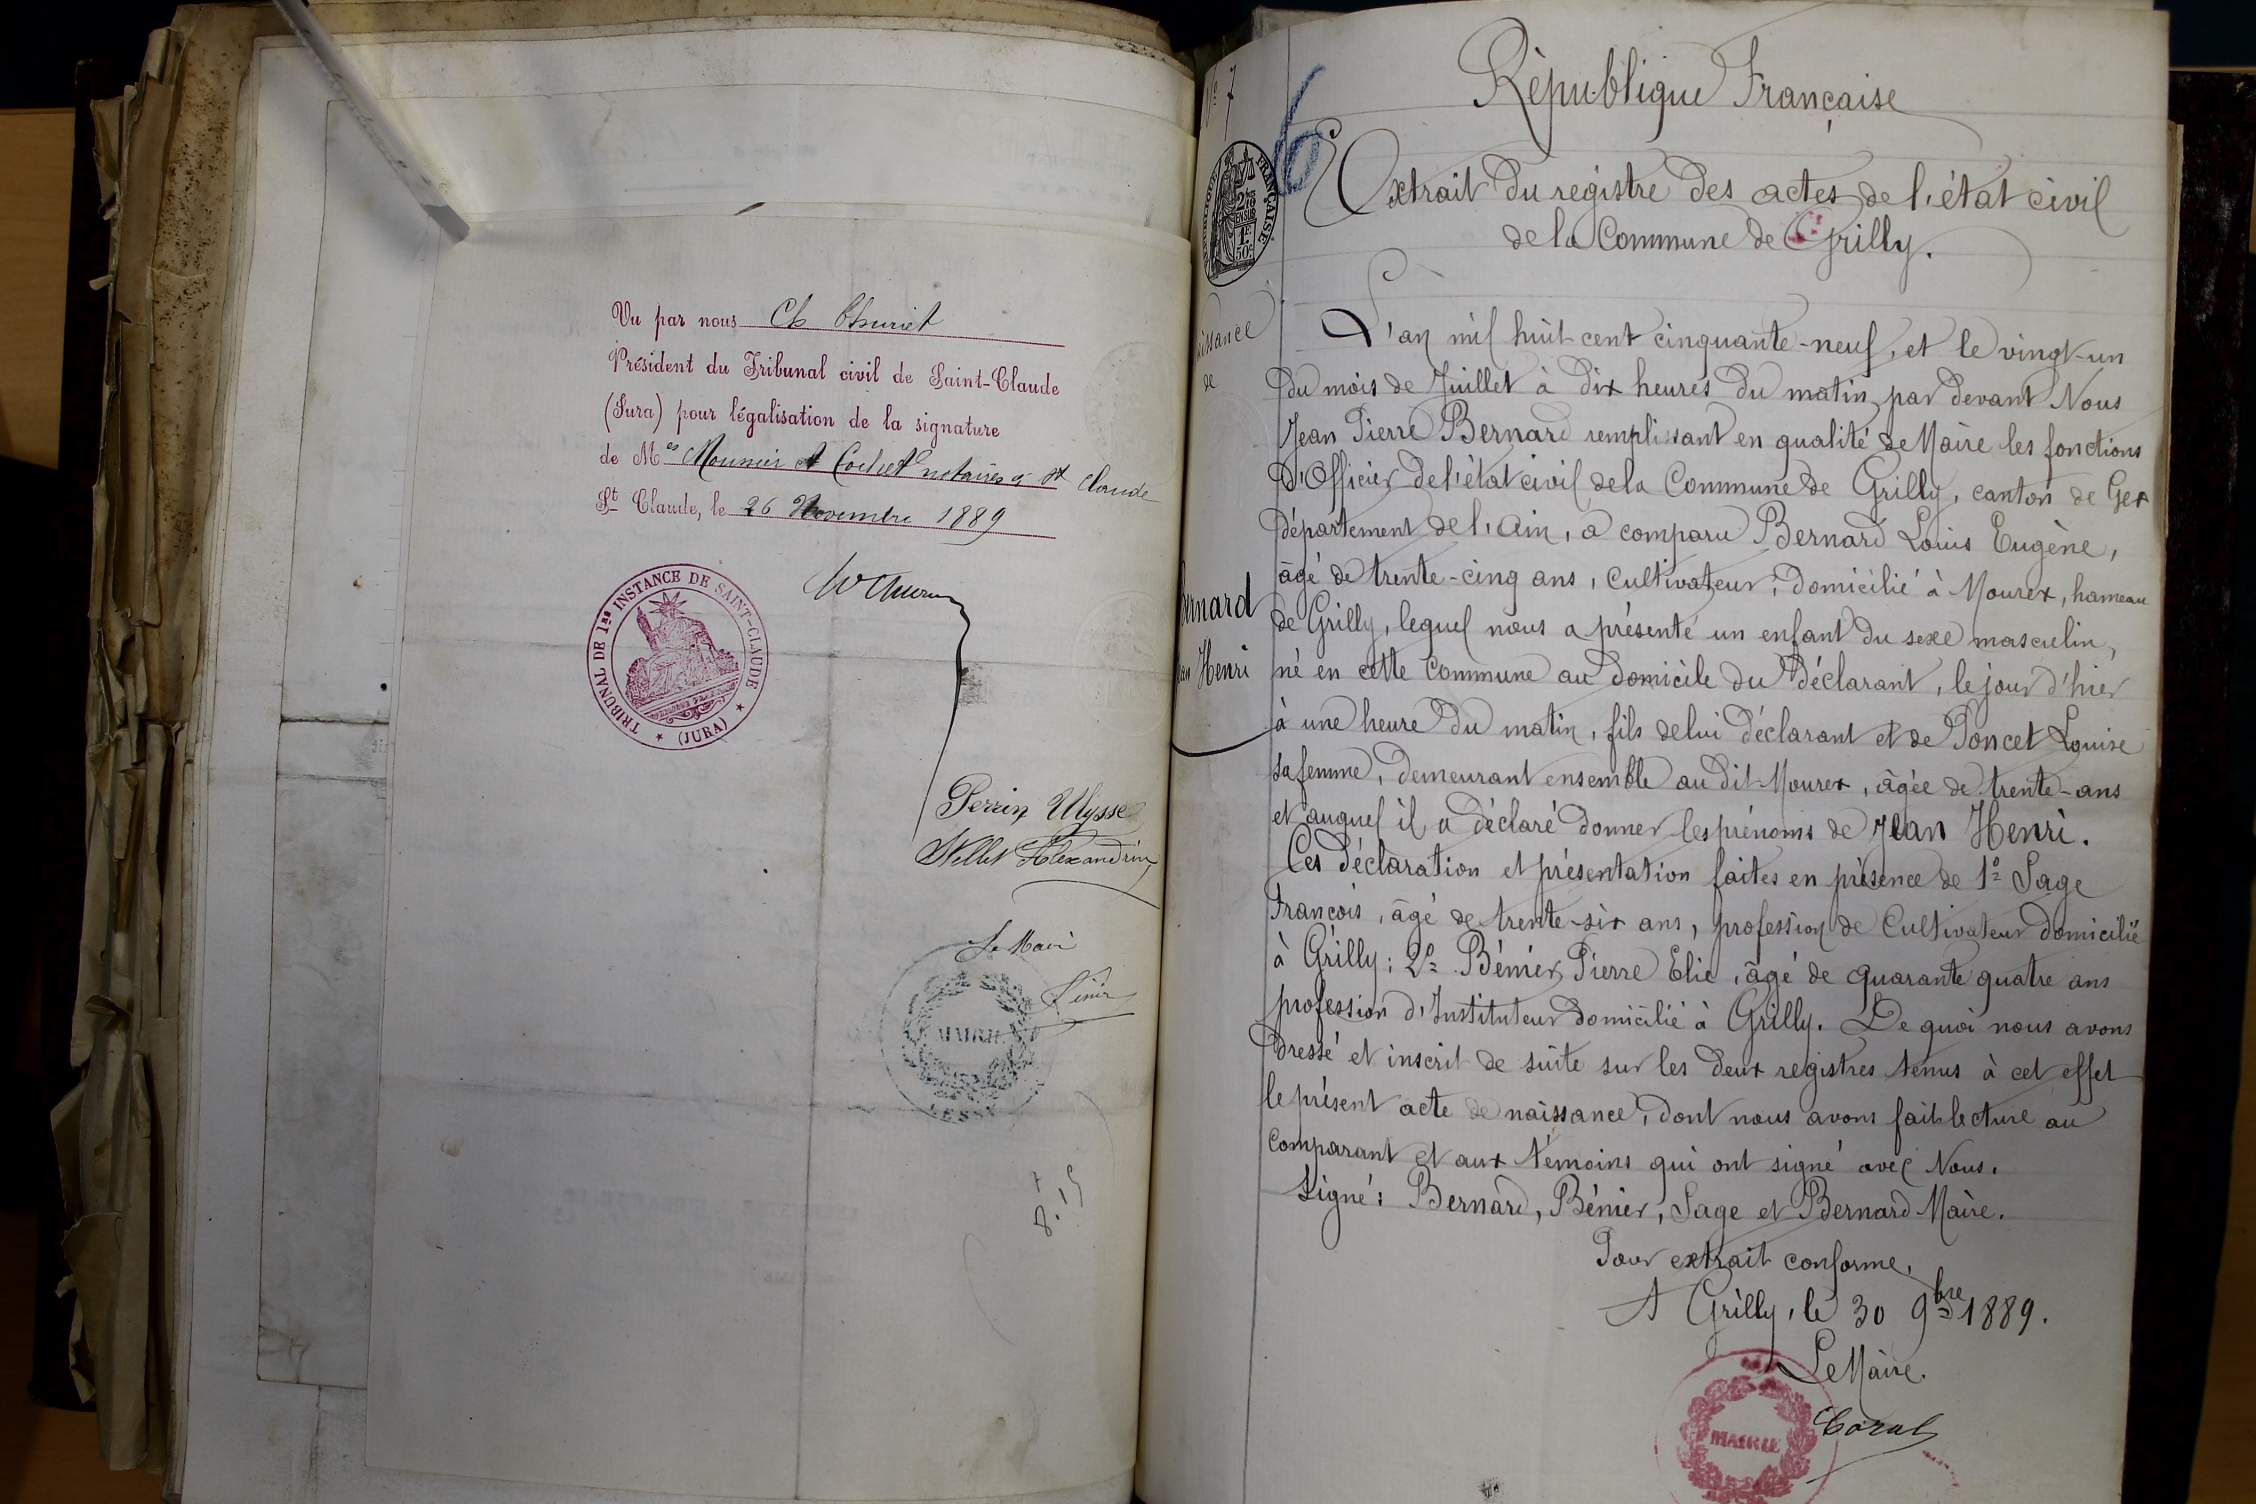 Vu par nous Ch Thuriet
Président du Tribunal civil de Saint-Claude
(Jura) pour légalisation de la signature
de Mes Mounier et Cochet notaires à St Claude
St Claude, le 26 Novembre 1889
TRIBUNAL DE 1re INSTANCE DE SAINT-CLAUDE
(JURA)
Perrin Ulysse
Millet Alexandrine
Le Maire
MAIRIE
8.15
No 7
6
République Française
RÉPUBLIQUE FRANÇAISE
2/10es
EN SUS
1F.
50c
Extrait du registre des actes de l'état civil
de la Commune de Grilly.
issance
de
Bernard
Jean Henri
L'an mil huit cent cinquante-neuf, et le vingt-un
du mois de Juillet à dix heures du matin, par devant Nous
Jean Pierre Bernard remplissant en qualité de Maire les fonctions
d'Officier de l'état civil de la Commune de Grilly, canton de Gex
département de l'Ain, a comparu Bernard Louis Eugène,
âgé de trente-cinq ans, Cultivateur, domicilié à Mourex, hameau
de Grilly, lequel nous a présenté un enfant du sexe masculin,
né en cette Commune au domicile du déclarant, le jour d'hier
à une heure du matin, fils de lui déclarant et de Poncet Louise
sa femme, demeurant ensemble au dit Mourex, âgée de trente-ans
et auquel il a déclaré donner les prénoms de Jean Henri.
Ces déclaration et présentation faites en présence de 1º Sage
François, âgé de trente-six ans, profession de Cultivateur domicilié
à Grilly; 2º Bénier Pierre Elie, âgé de quarante quatre ans
profession d'Instituteur domicilié à Grilly. De quoi nous avons
dressé et inscrit de suite sur les deux registres tenus à cet effet
le présent acte de naissance, dont nous avons fait lecture au
comparant et aux témoins qui ont signé avec Nous.
Signé: Bernard, Bénier, Sage et Bernard Maire.
Pour extrait conforme,
A Grilly, le 30 9bre 1889.
Le Maire.
MAIRIE